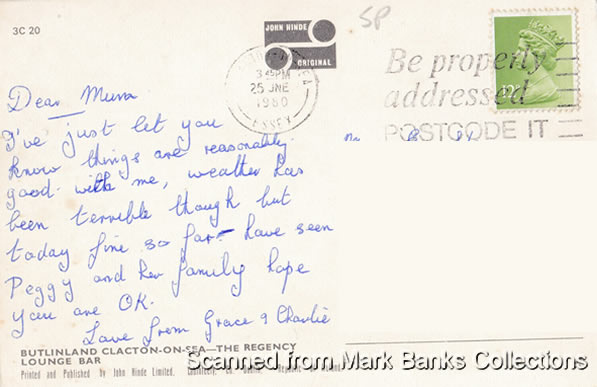 3C 20
JOHN HINDE
ORIGINAL
SP
3 PM
25 JNE
1980
ESSEX
Be properly
addressed
POSTCODE IT
Dear Mum
I've just let you
know things are reasonably
good with me, weather has
been terrible though but
today fine so far have seen
Peggy and her family hope
you are OK.
Love from Grace & Charlie
BUTLINLAND CLACTON-ON-SEA—THE REGENCY
LOUNGE BAR
Printed and Published by John Hinde Limited,
Scanned from Mark Banks Collections